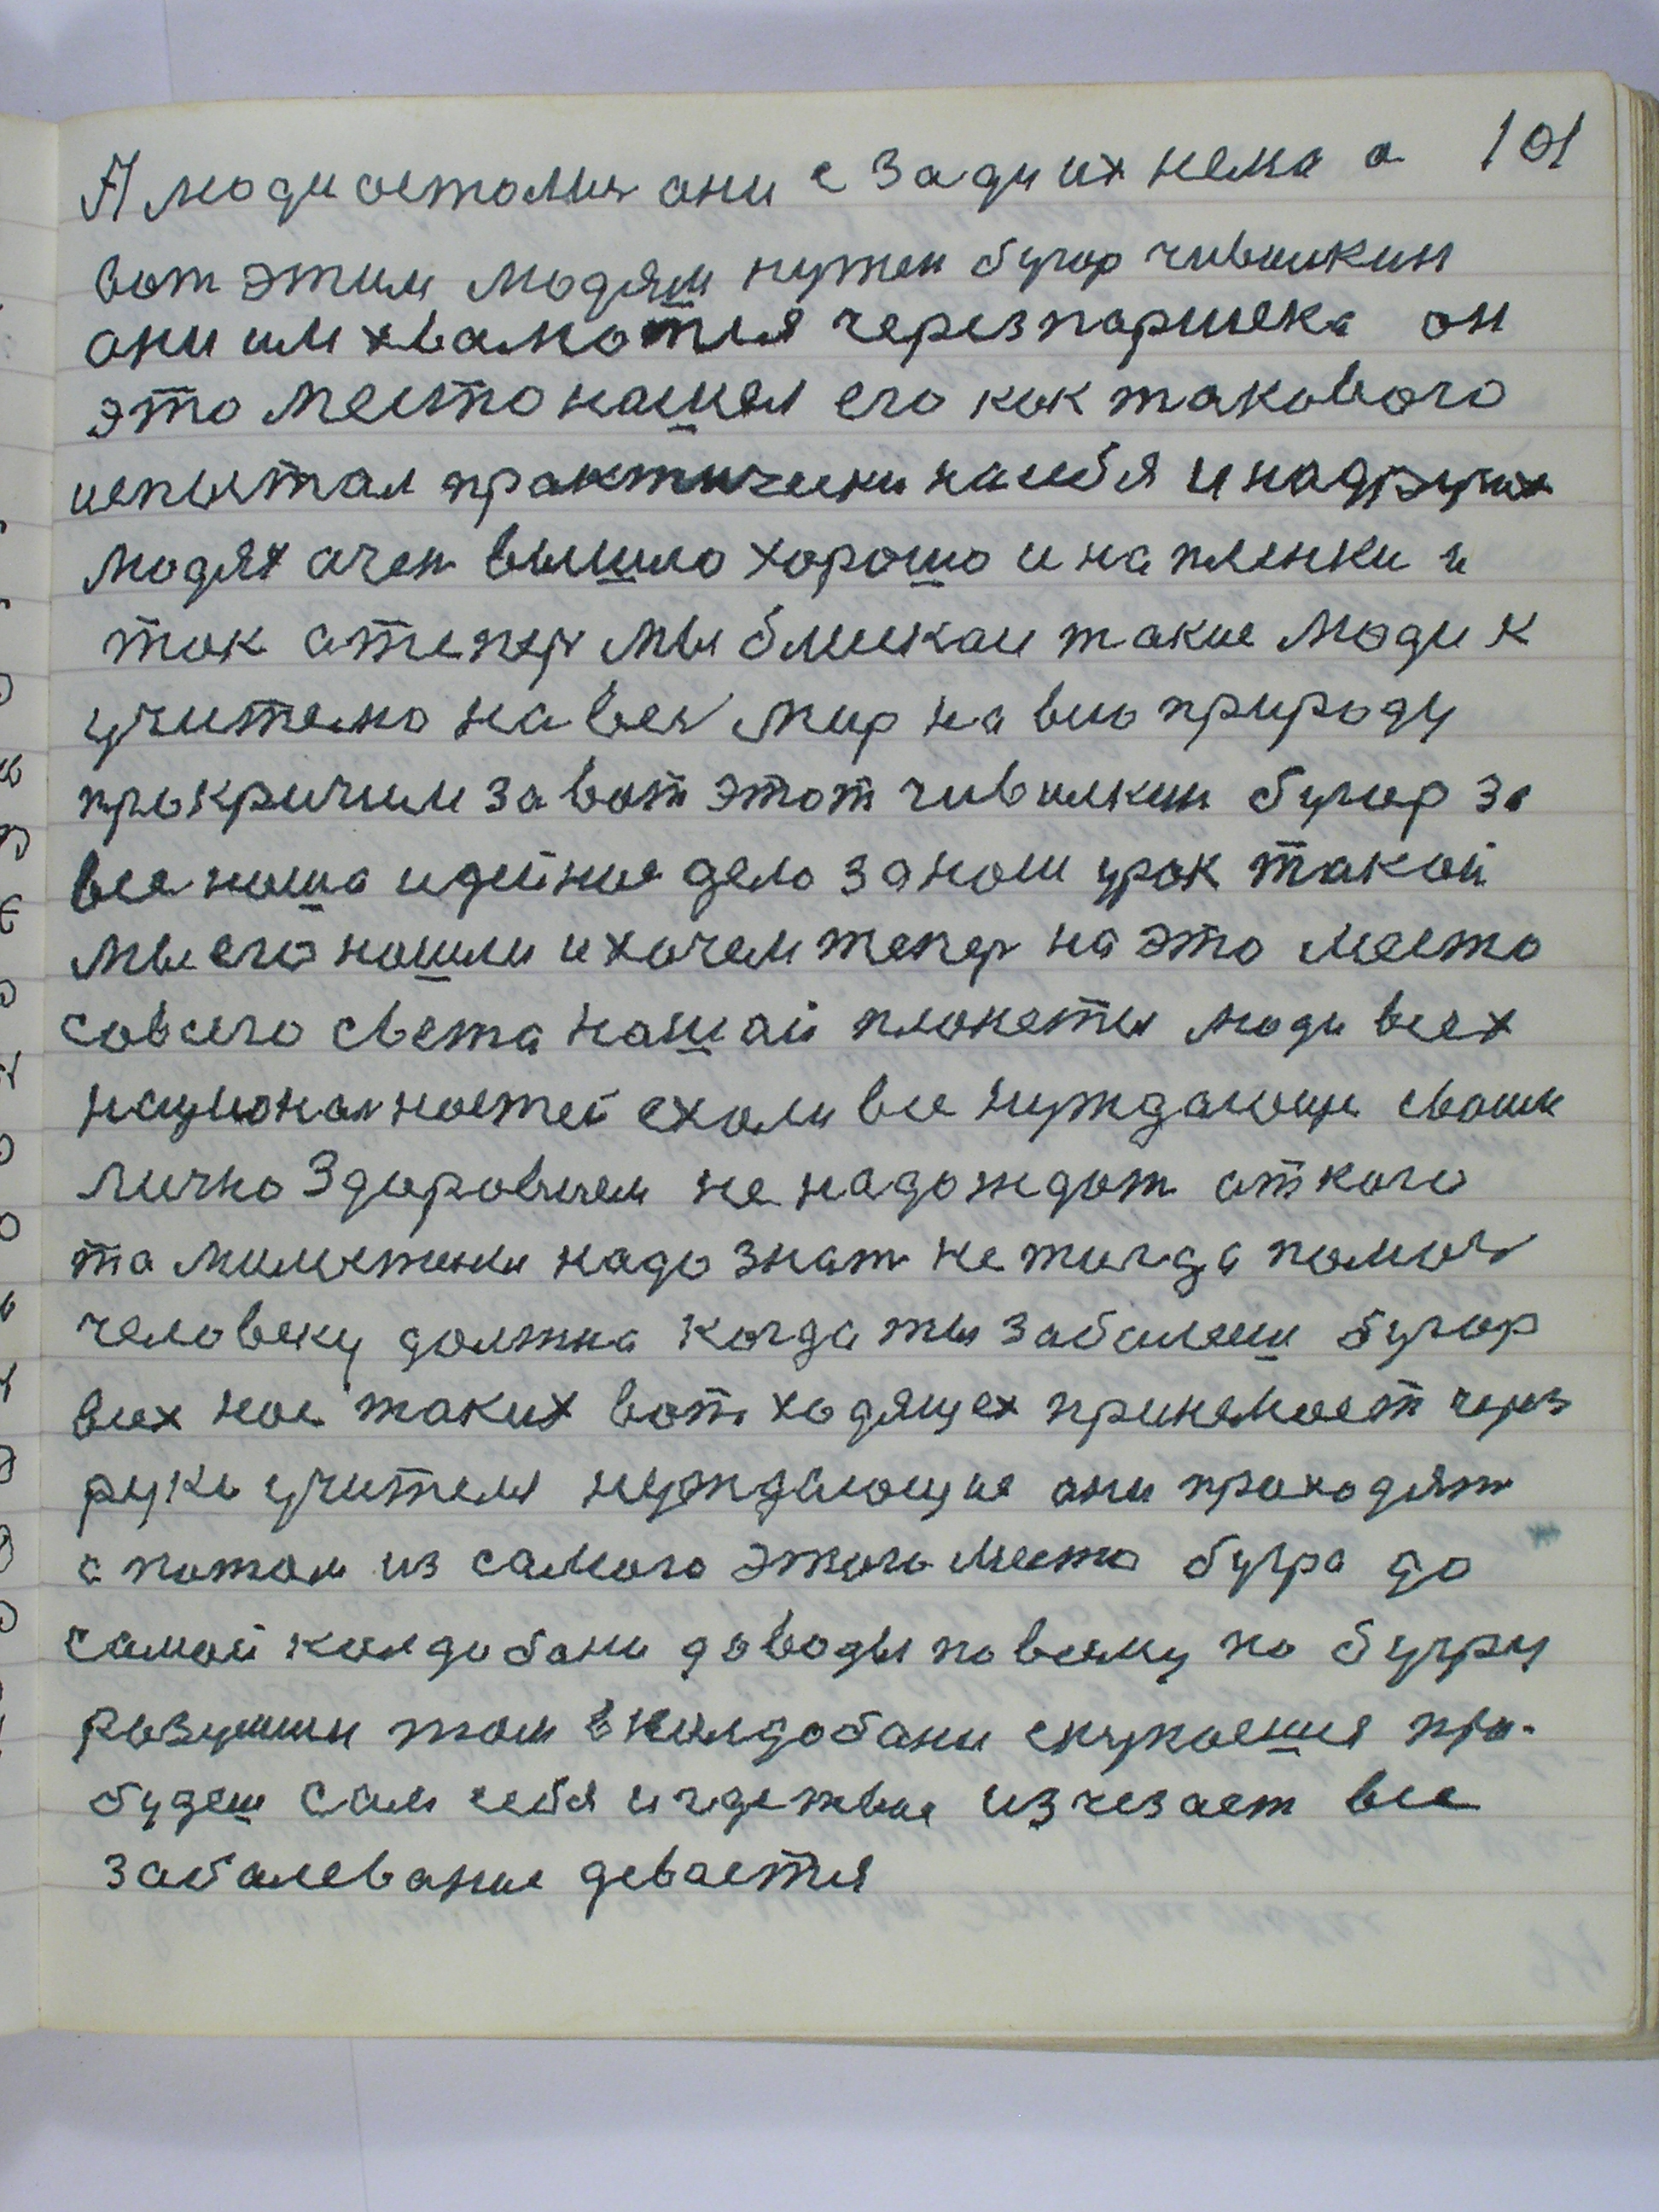 101
А люди астолис ани с зади их нема а
вот этим людям нужен бугор чивилкин
ани им хвалются через паршека он
это место нашел его как такового
испытал практически на себя и на других
людях очен вышло хорошо и на пленки и
так а тепер мы блискаи такие люди к
учителю на вес мир на всю природу
прокричим за вот этот чивилкин бугор за
все наша идейное дело за нош урок такой
мы его нашли и хочем тепер на это место
со всего света нашай планеты люди всех
национальностей ехали все нуждающи своим
лично здоровием не надо ждат от кого
та милостини надо знат не тигда помоч
человеку должна когда ты заболееш бугор
всех нас таких вот ходящех принемает через
руки учителя нуждающие они праходят
а потом из самого этого места бугра до
самай калдобани до воды по всему по бугру
разувши там в калдобани скупаешся про-
будеш сам себя и где твое изчезает все
заболевание девается